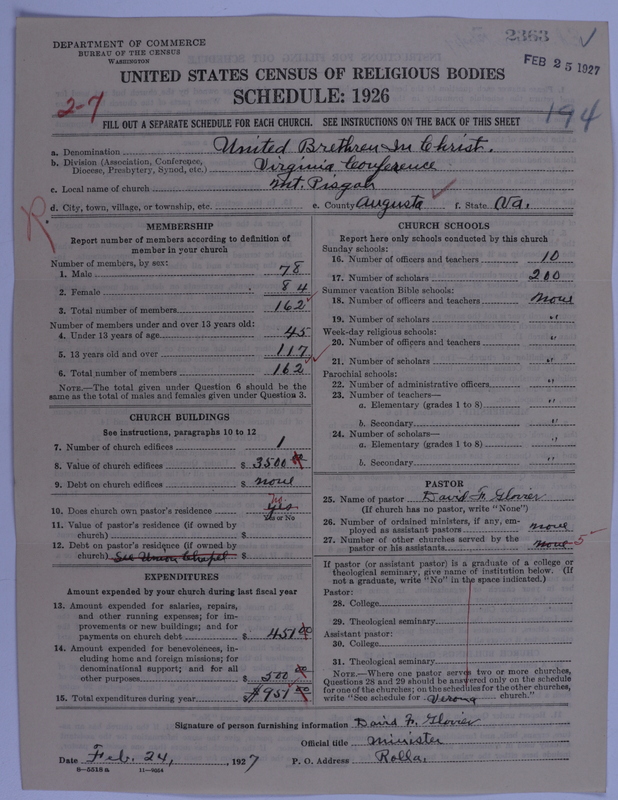 2363 ✓
FEB 25 1927
DEPARTMENT OF COMMERCE
BUREAU OF THE CENSUS
WASHINGTON
UNITED STATES CENSUS OF RELIGIOUS BODIES
SCHEDULE: 1926
2-7
194
FILL OUT A SEPARATE SCHEDULE FOR EACH CHURCH. SEE INSTRUCTIONS ON THE BACK OF THIS SHEET
a. Denomination United Brethren In Christ.
b. Division (Association, Conference, Diocese, Presbytery, Synod, etc.) Virginia Conference
c. Local name of church Mt. Pisgah
d. City, town, village, or township, etc. e. County Augusta ✓ f. State. Va.
R
MEMBERSHIP
Report number of members according to definition of
member in your church
Number of members, by sex:
1. Male 78
2. Female 84
3. Total number of members 162 ✓
Number of members under and over 13 years old:
4. Under 13 years of age 45
5. 13 years old and over 117 ✓
6. Total number of members 162 ✓
NOTE.—The total given under Question 6 should be the
same as the total of males and females given under Question 3.
CHURCH BUILDINGS
See instructions, paragraphs 10 to 12
7. Number of church edifices 1
8. Value of church edifices $ 3500 00
9. Debt on church edifices $ none
10. Does church own pastor's residence No yes
Yes or No
11. Value of pastor's residence (if owned by
church) $
12. Debt on pastor's residence (if owned by
church) See Union Chapel $
EXPENDITURES
Amount expended by your church during last fiscal year
13. Amount expended for salaries, repairs,
and other running expenses; for im-
provements or new buildings; and for
payments on church debt $ 451 00
14. Amount expended for benevolences, in-
cluding home and foreign missions; for
denominational support; and for all
other purposes $ 500 00
15. Total expenditures during year $ 951 00
CHURCH SCHOOLS
Report here only schools conducted by this church
Sunday schools:
16. Number of officers and teachers 10
17. Number of scholars 200
Summer vacation Bible schools:
18. Number of officers and teachers none
19. Number of scholars "
Week-day religious schools:
20. Number of officers and teachers "
21. Number of scholars "
Parochial schools:
22. Number of administrative officers "
23. Number of teachers—
a. Elementary (grades 1 to 8) "
b. Secondary "
24. Number of scholars—
a. Elementary (grades 1 to 8) "
b. Secondary "
PASTOR
25. Name of pastor David F. Glovier
(If church has no pastor, write "None")
26. Number of ordained ministers, if any, em-
ployed as assistant pastors none
27. Number of other churches served by the
pastor or his assistants none 5
If pastor (or assistant pastor) is a graduate of a college or
theological seminary, give name of institution below. (If
not a graduate, write "No" in the space indicated.)
Pastor:
28. College
29. Theological seminary
Assistant pastor:
30. College
31. Theological seminary
NOTE.—Where one pastor serves two or more churches,
Questions 28 and 29 should be answered only on the schedule
for one of the churches; on the schedules for the other churches,
write "See schedule for Verona church."
Signature of person furnishing information David F. Glovier
Official title Minister
Date Feb. 24, 1927 P. O. Address Rolla.
8-5518a 11-9264